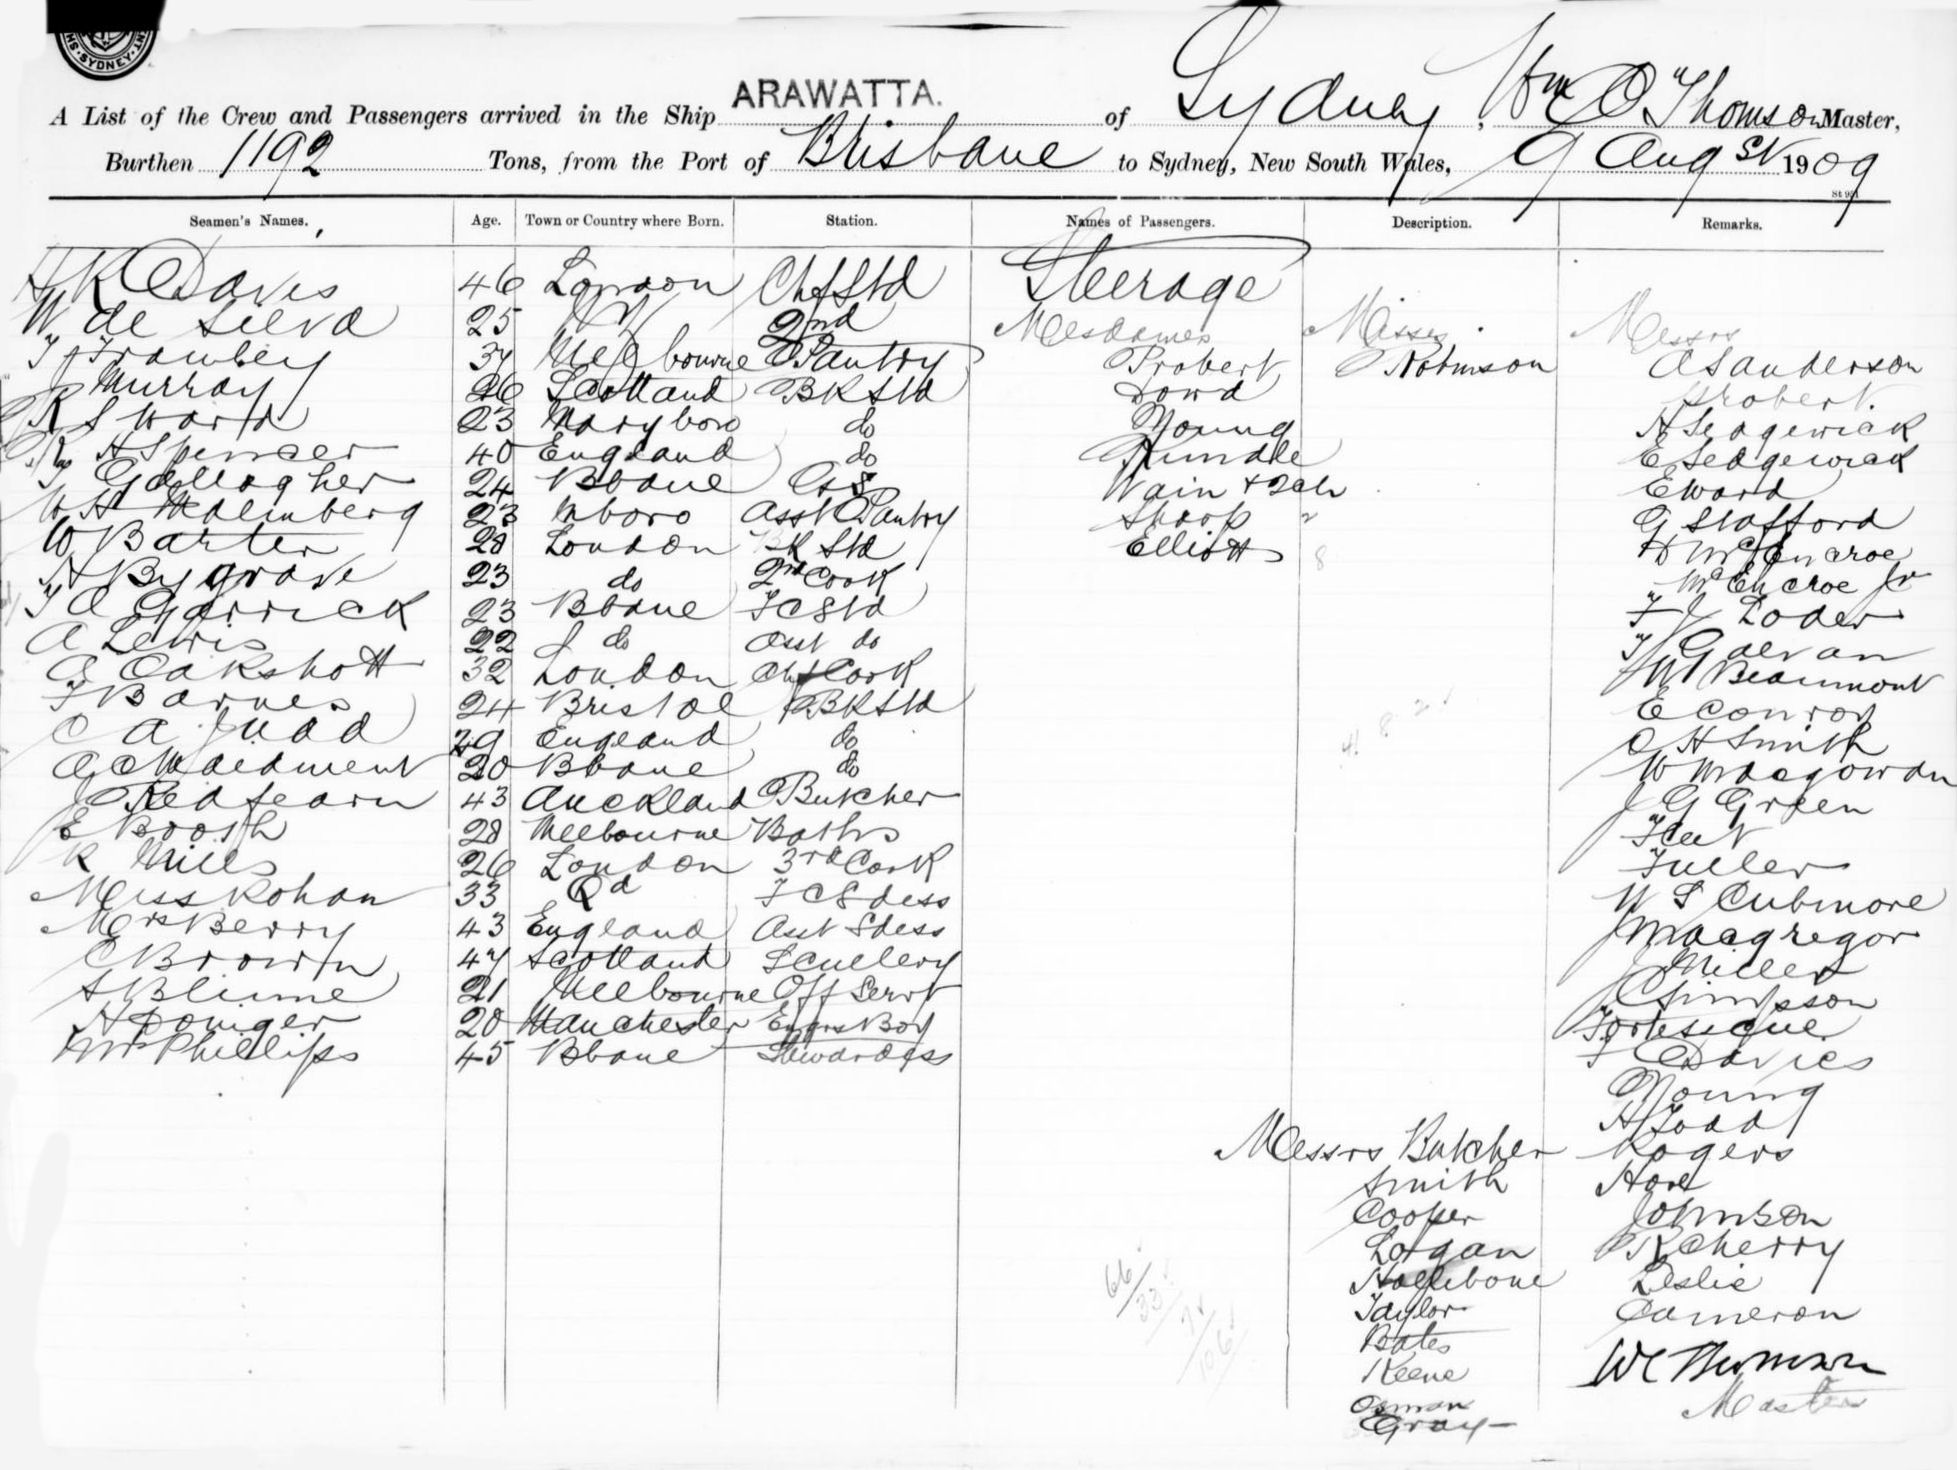 SYDNEY
ARAWATTA.
A List of the Crew and Passengers arrived in the Ship ARAWATTA. of Sydney, Wm C Thomson Master,
Burthen 1192 Tons, from the Port of Brisbane to Sydney, New South Wales, 9 Augst 1909
Seamen's Names. Age. Town or Country where Born. Station. Names of Passengers. Description. Remarks.
H K Davis 46 London Chf Std
W de Silva 25 2nd
T J Frawley 37 Melbourne Pantry
J Murray 26 Scotland BK Std
R S Ward 23 Maryboro do
R H Spencer 40 England do
T Gallagher 24 Bbane
W H Malmberg 23 Mboro Asst Pantry
W Barter 28 London BK Std
H Bygrave 23 do 2nd Cook
T A Garrick 23 Bbane F C Std
A Lewis 22 do Asst do
A Oakshott 32 London Chf Cook
F Barnes 24 Bristol BK Std
C A Judd 29 England do
A C Maidment 20 Bbane do
J Redfearn 43 Auckland Butcher
E Booth 28 Melbourne Baths
R Mills 26 London 3rd Cook
Miss Rohan 33 Qd F C Sdess
Mrs Berry 43 England Asst Sdess
C Brown 47 Scotland Scullery
S Blume 21 Melbourne Off Servt
H Doniger 20 Manchester Engrs Boy
Mrs Phillips 45 Bbane Stewardess
Steerage
Mesdames
Probert
Dowd
Young
Rundle
Wain + 2ch
Sharp
Elliott
Misses
Robinson
Messrs
A Sanderson
Probert
H Sedgewick
E Sedgewick
E Ward
G Stafford
H McEncroe
McEncroe Jr
F J Loder
T Galvan
W Beaumont
E Conroy
C H Smith
W Macgowan
J G Green
Fuller
W S Cubmore
J Macgregor
J Miller
C Simpson
Fortescue
F Davies
Young
H Todd
Rogers
Hore
Johnson
R Cherry
Leslie
Cameron
Messrs Butcher
Smith
Cooper
Logan
Taylor
Bates
Keene
Osman
Gray
66
33
7
106
WC Thomson
Master